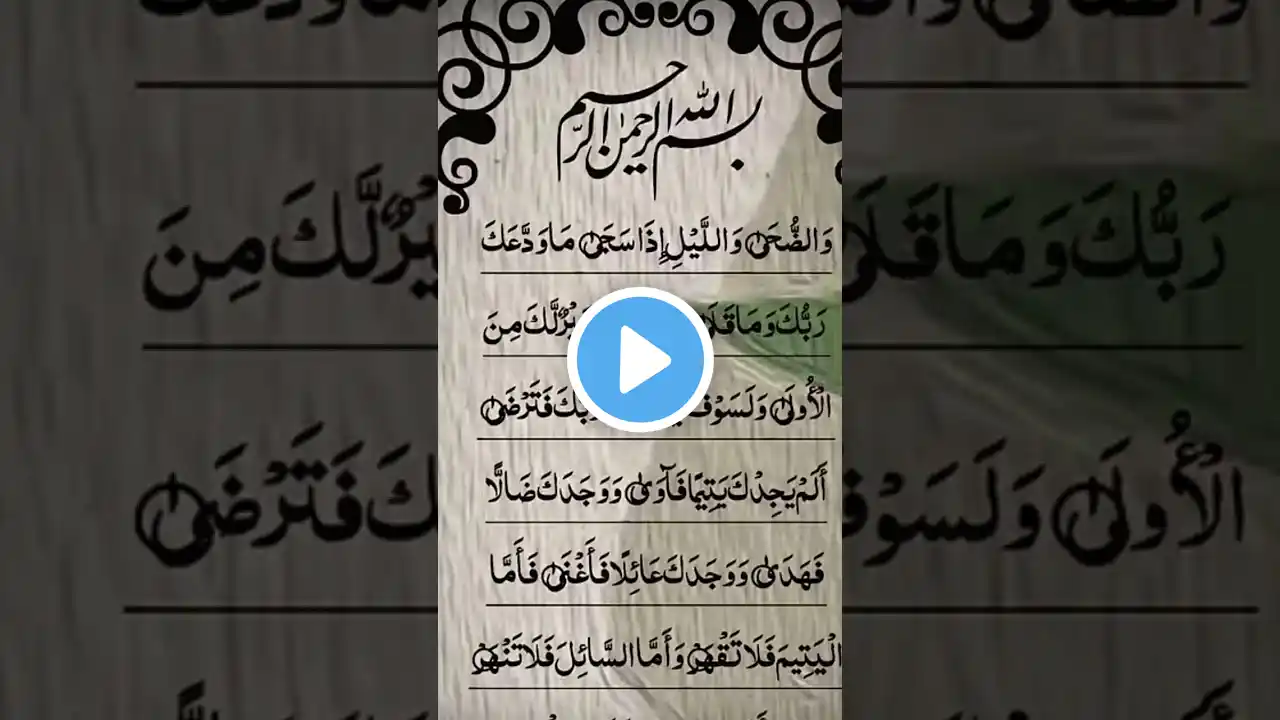 بسم الله الرحمن الرحيم
وَالضُّحَىٰ وَاللَّيْلِ إِذَا سَجَىٰ مَا وَدَّعَكَ
رَبُّكَ وَمَا قَلَىٰ لَّكَ مِنَ
الْأُولَىٰ وَلَسَوْفَ فَتَرْضَىٰ
أَلَمْ يَجِدْكَ يَتِيمًا فَآوَىٰ وَوَجَدَكَ ضَالًّا
فَهَدَىٰ وَوَجَدَكَ عَائِلًا فَأَغْنَىٰ فَأَمَّا
الْيَتِيمَ فَلَا تَقْهَرْ وَأَمَّا السَّائِلَ فَلَا تَنْهَرْ